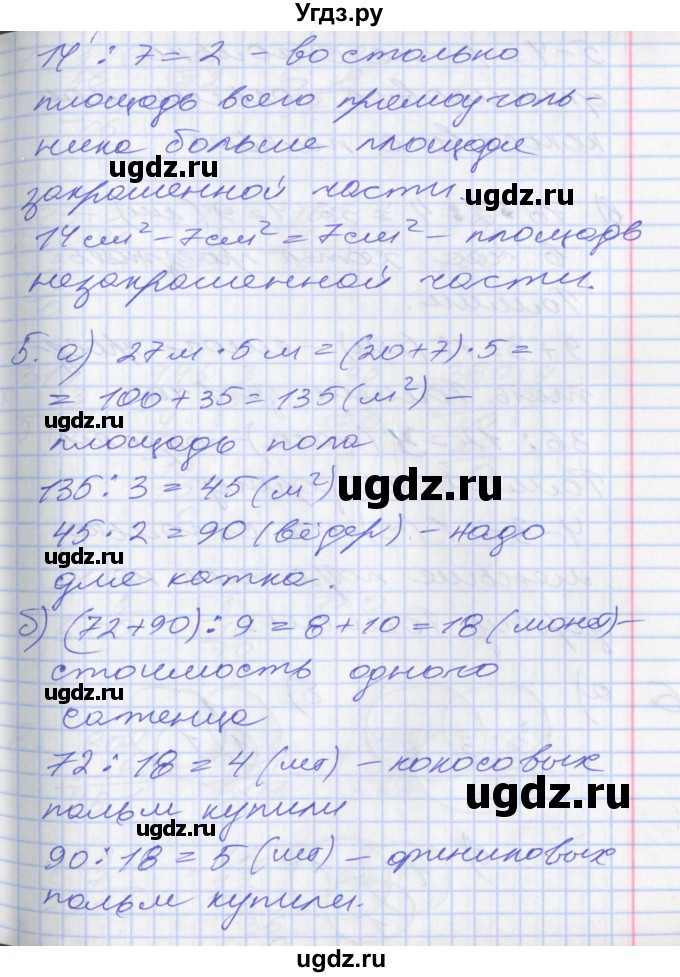 Угдз.ру
14 : 7 = 2 – во столько
площадь всего прямоуголь-
ника больше площади
ugdz.ru ugdz.ru
закрашенной части.
14 см² – 7 см² = 7 см² – площадь
ugdz.ru
незакрашенной части.
5. а) 27 м · 5 м = (20+7) · 5 =
= 100 + 35 = 135 (м²) –
ugdz.ru
площадь пола
135 : 3 = 45 (м²)
ugdz.ru
45 · 2 = 90 (вёдер) – надо
ugdz.ru
для катка.
б) (72+90) : 9 = 8 + 10 = 18 (монет) –
стоимость одного
ugdz.ru
саженца
72 : 18 = 4 (шт) – кокосовых
ugdz.ru
пальм купили
ugdz.ru
90 : 18 = 5 (шт) – финиковых
пальм купили.
ugdz.ru
ugdz.ru